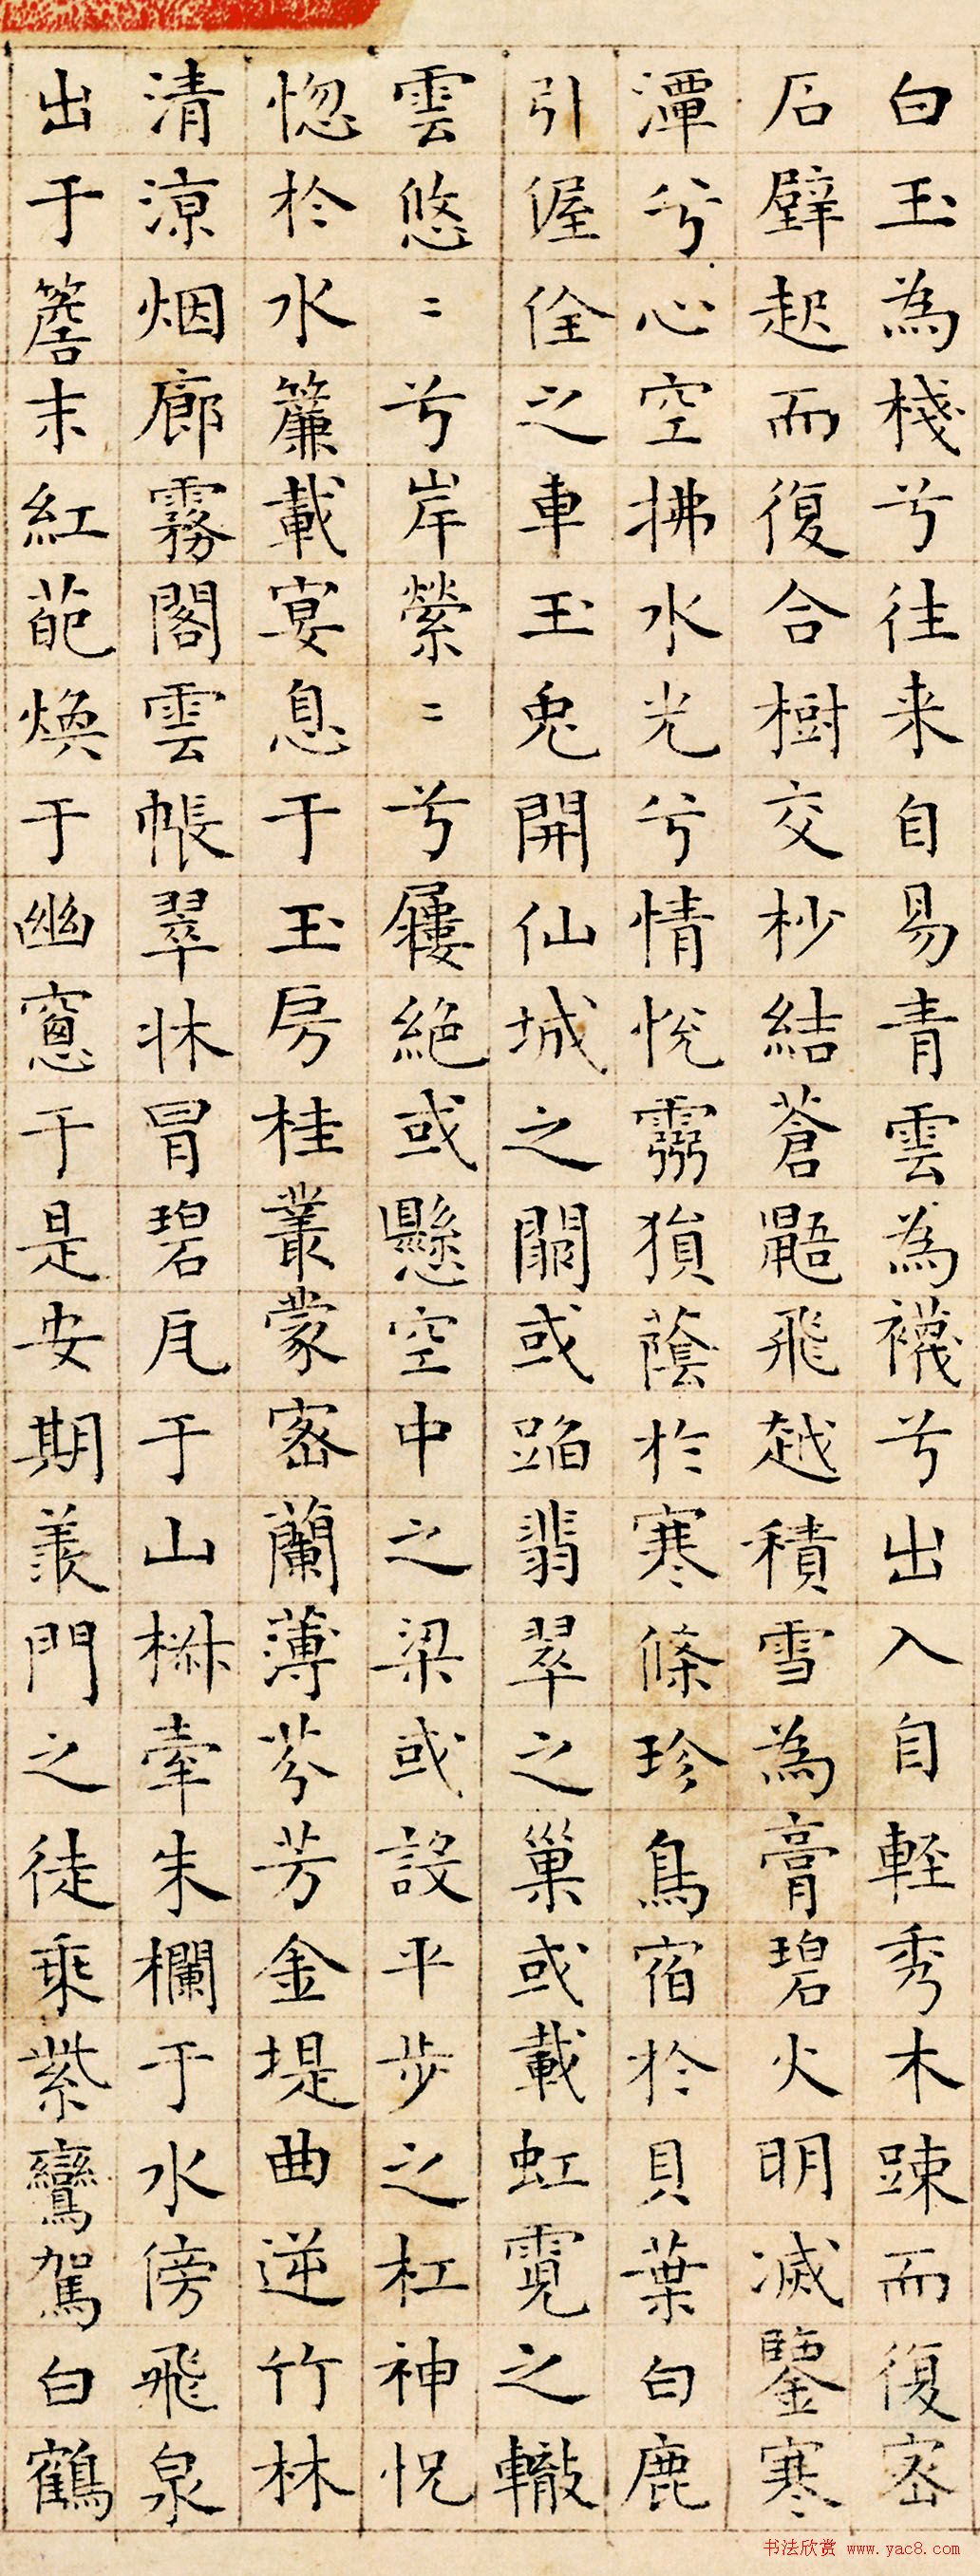 白玉為棧兮往来自易青雲為襪兮出入自軽秀木踈而復宻
石壁起而復合樹交杪結蒼鼯飛越積雪為膏碧火明滅鑒寒
潭兮心空拂水光兮情悦靈猿蔭於寒條珍鳥宿於貝葉白鹿
引偓佺之車玉兔開仙城之關或蹈翡翠之巢或載虹霓之轍
雲悠〻兮岸縈〻兮屨絕或懸空中之梁或設平步之杠神怳
惚於水簾載宴息于玉房桂叢蒙宻蘭薄芬芳金堤曲逆竹林
清涼烟廊霧閣雲帳翠牀冒碧瓦于山椒牽朱欄于水傍飛泉
出于簷末紅葩煥于幽窻于是安期羨門之徒乘紫鸞駕白鶴
书法欣赏 www.yac8.com